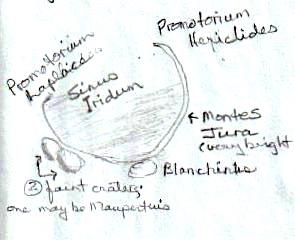 Promotorium
Hericlides
Promotorium
Sinus
Iridum
Montes
Jura
(very bright
② faint craters;
one may be Maupertuis